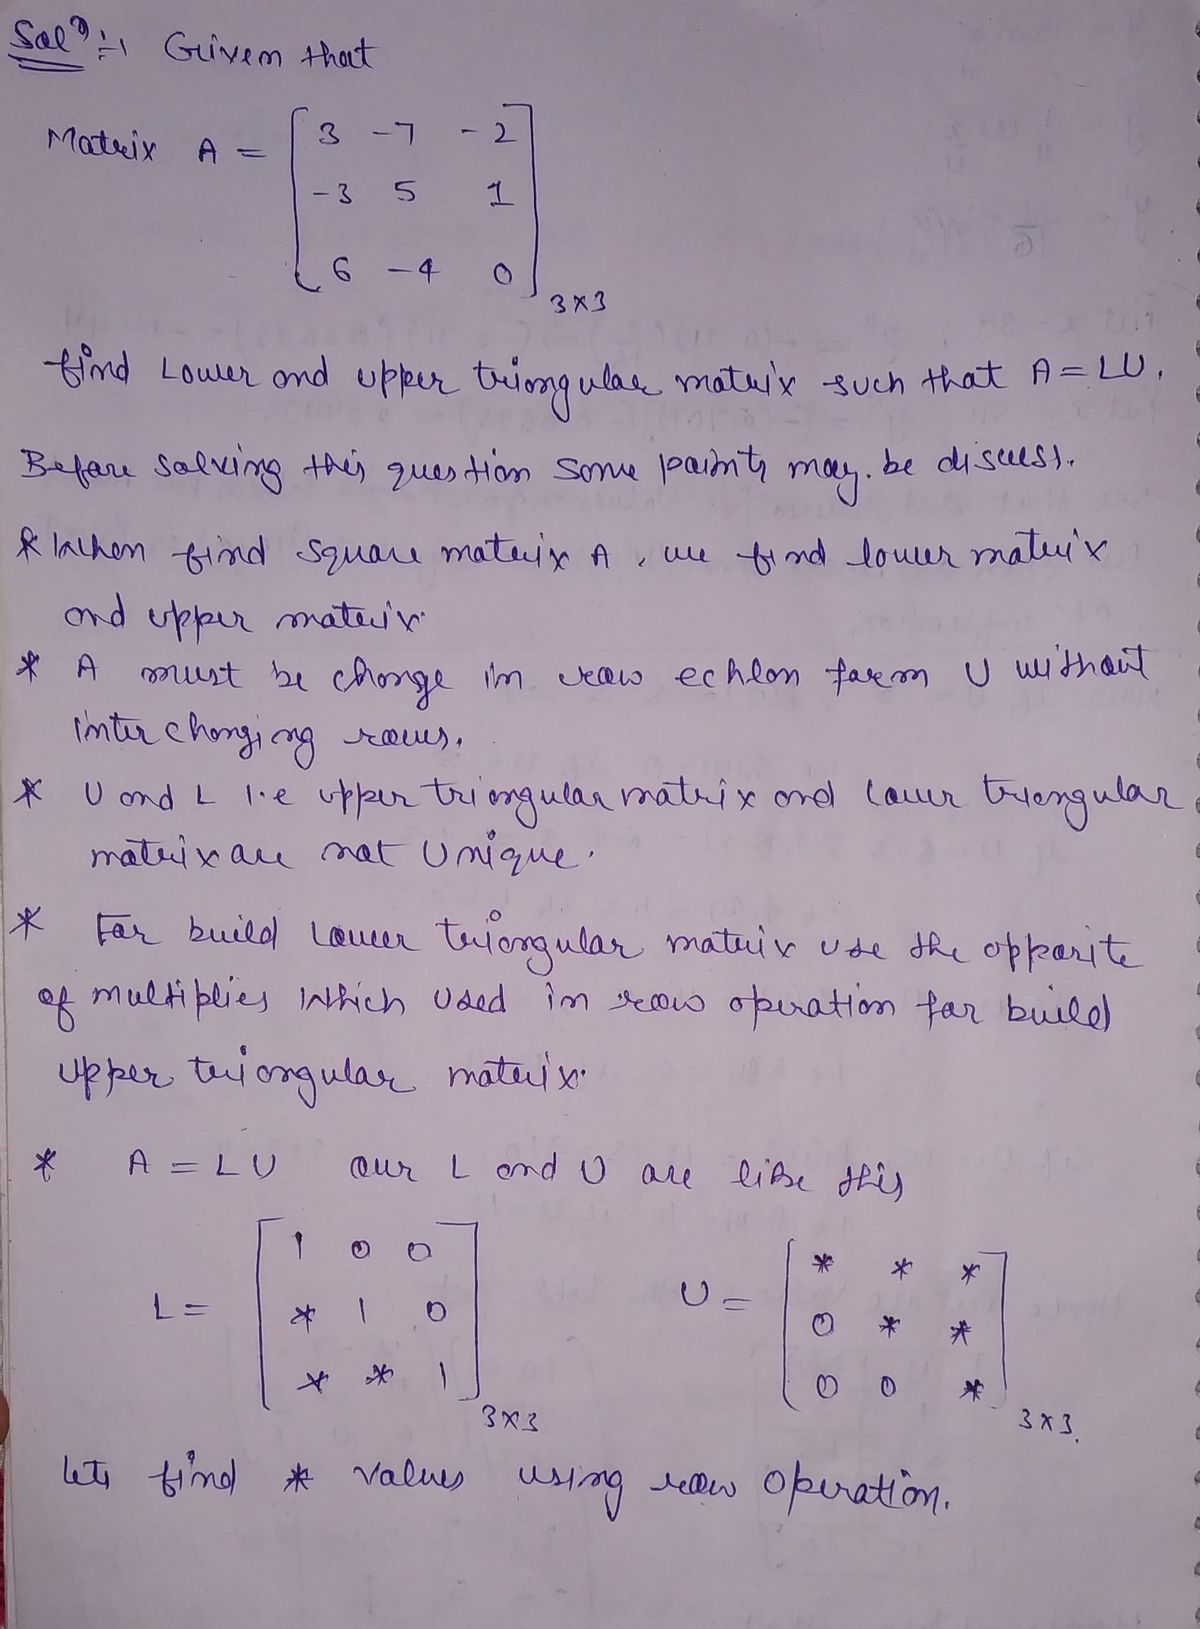 Solⁿ :-> Given that
Matrix A = [ 3 -7 -2
-3 5 1
6 -4 0 ] 3×3
find Lower and upper triangular matrix such that A = LU.
Before solving this question some points may. be discuss.
* When find square matrix A, we find lower matrix
and upper matrix.
* A must be change in raw echlon form U without
interchanging rows.
* U and L i.e upper triangular matrix and lower triangular
matrix are not Unique.
* For build Lower triangular matrix use the opposite
of multiplies Which used in row operation for build
upper triangular matrix.
* A = LU our L and U are like this
L = [ 1 0 0
* 1 0
* * 1 ] 3×3
U = [ * * *
0 * *
0 0 * ] 3×3.
lets find * values using row operation.